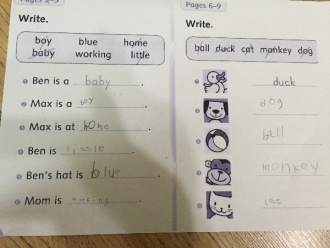 Pages 2–9
Write.
boy blue home
baby working little
Ben is a baby.
Max is a boy.
Max is at home.
Ben is little.
Ben's hat is blue.
Mom is
Pages 6–9
Write.
ball duck cat monkey dog
duck
dog
ball
monkey
cat